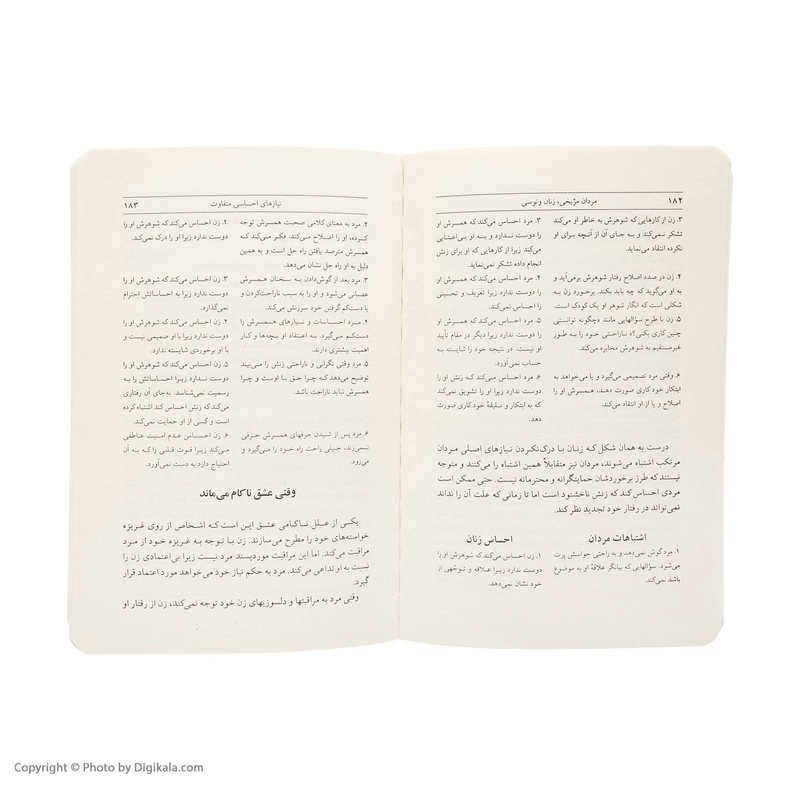 ۱۸۲ مردان مرّیخی، زنان ونوسی
۳. زن از کارهایی که شوهرش به خاطر او می‌کند
تشکر نمی‌کند و به جای آن از آنچه برای او
نکرده انتقاد می‌نماید.
۳. مرد احساس می‌کند که همسرش او
را دوست ندارد و به او بی‌اعتنایی
می‌کند زیرا از کارهایی که او برای زنش
انجام داده تشکر نمی‌نماید.
۴. زن در صدد اصلاح رفتار شوهرش برمی‌آید و
به او می‌گوید که چه باید بکند. برخورد زن به
شکلی است که انگار شوهر او یک کودک است.
۴. مرد احساس می‌کند که همسرش او
را دوست ندارد زیرا تعریف و تحسینی
را احساس نمی‌کند.
۵. زن با طرح سؤالهایی مانند «چگونه توانستی
چنین کاری بکنی؟» ناراحتی خود را به طور
غیرمستقیم به شوهرش مخابره می‌کند.
۵. مرد احساس می‌کند که همسرش او
را دوست ندارد زیرا دیگر در مقام تأیید
او نیست. در نتیجه خود را شایسته به
حساب نمی‌آورد.
۶. وقتی مرد تصمیمی می‌گیرد و یا می‌خواهد به
ابتکار خود کاری صورت دهد، همسرش او را
اصلاح و یا از او انتقاد می‌کند.
۶. مرد احساس می‌کند که زنش او را
دوست ندارد زیرا او را تشویق نمی‌کند
که به ابتکار و سلیقهٔ خود کاری صورت
دهد.
درست به همان شکل که زنان با درک‌نکردن نیازهای اصلی مردان
مرتکب اشتباه می‌شوند، مردان نیز متقابلاً همین اشتباه را می‌کنند و متوجه
نیستند که طرز برخوردشان حمایتگرانه و محترمانه نیست. حتی ممکن است
مردی احساس کند که زنش ناخشنود است اما تا زمانی که علت آن را نداند
نمی‌تواند در رفتار خود تجدید نظر کند.
اشتباهات مردان
۱. مرد گوش نمی‌دهد و به راحتی حواسش پرت
می‌شود. سؤالهایی که بیانگر علاقهٔ او به موضوع
باشد نمی‌کند.
احساس زنان
۱. زن احساس می‌کند که شوهرش او را
دوست ندارد زیرا علاقه و توجّهی از
خود نشان نمی‌دهد.
نیازهای احساسی متفاوت ۱۸۳
۲. مرد به معنای کلامی صحبت همسرش توجه
کرده، او را اصلاح می‌کند. فکر می‌کند که
همسرش مترصد یافتن راه حل است و به همین
دلیل به او راه حل نشان می‌دهد.
۲. زن احساس می‌کند که شوهرش او را
دوست ندارد زیرا او را درک نمی‌کند.
۳. مرد بعد از گوش‌دادن به سخنان همسرش
عصبانی می‌شود و او را به سبب ناراحت‌کردن و
یا دست‌کم گرفتن خود سرزنش می‌کند.
۳. زن احساس می‌کند که شوهرش او را
دوست ندارد زیرا به احساساتش احترام
نمی‌گذارد.
۴. مرد احساسات و نیازهای همسرش را
دست‌کم می‌گیرد. به اعتقاد او بچه‌ها و کار
اهمیت بیشتری دارند.
۴. زن احساس می‌کند که شوهرش او را
دوست ندارد زیرا با او صمیمی نیست و
با او برخوردی شایسته ندارد.
۵. مرد وقتی نگرانی و ناراحتی زنش را می‌بیند
توضیح می‌دهد که چرا حق با اوست و چرا
همسرش نباید ناراحت باشد.
۵. زن احساس می‌کند که شوهرش او را
دوست ندارد زیرا احساناتش را به
رسمیت نمی‌شناسد. به‌جای آن رفتاری
می‌کند که زنش احساس کند اشتباه کرده
است و کسی از او حمایت نمی‌کند.
۶. مرد پس از شنیدن حرفهای همسرش حرفی
نمی‌زند، خیلی راحت راه خود را می‌گیرد و
می‌رود.
۶. زن احساس عدم امنیت عاطفی
می‌کند زیرا قوت قلبی را که به آن
احتیاج دارد به دست نمی‌آورد.
وقتی عشق ناکام می‌ماند
یکی از علل ناکامی عشق این است که اشخاص از روی غریزه
خواسته‌های خود را مطرح می‌سازند. زن با توجه به غریزه خود از مرد
مراقبت می‌کند. اما این مراقبت موردپسند مرد نیست زیرا بی‌اعتمادی زن را
نسبت به او تداعی می‌کند. مرد به حکم نیاز خود می‌خواهد مورد اعتماد قرار
گیرد.
وقتی مرد به مراقبتها و دلسوزیهای زن خود توجه نمی‌کند، زن از رفتار او
Copyright © Photo by Digikala.com